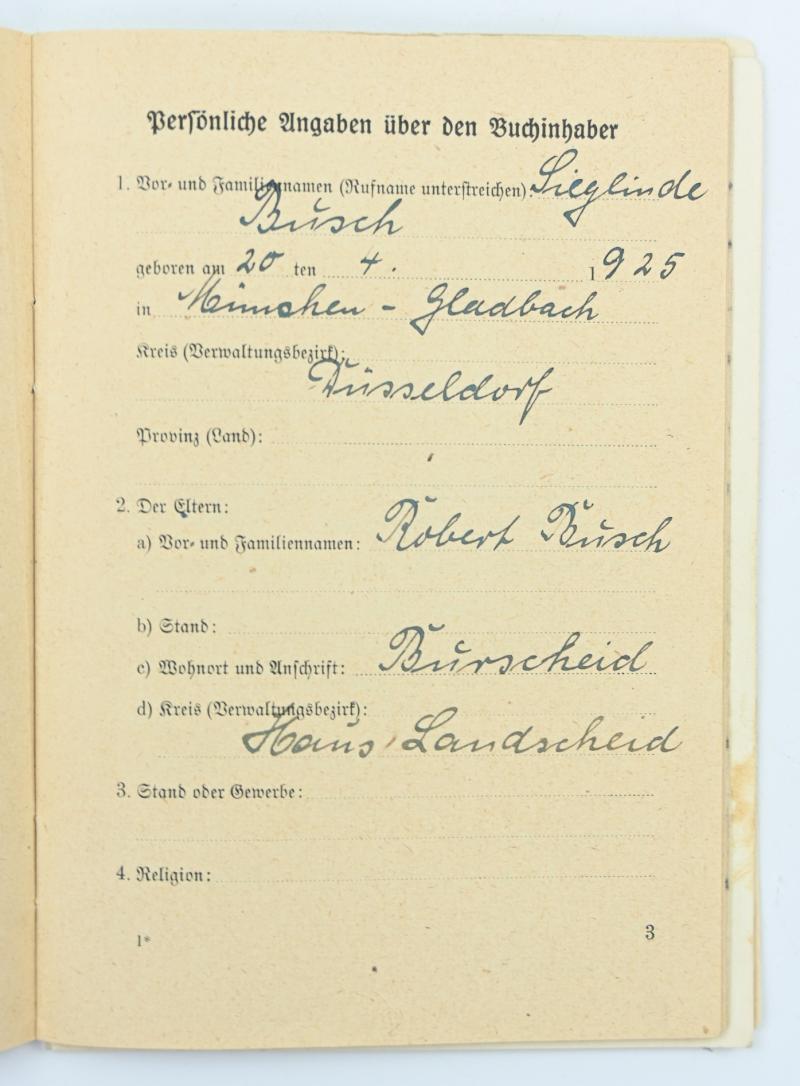 Persönliche Angaben über den Buchinhaber
1. Vor- und Familiennamen (Rufname unterstreichen): Sieglinde
Busch
geboren am 20 ten 4. 1925
in München - Gladbach
Kreis (Verwaltungsbezirk):
Düsseldorf
Provinz (Land):
2. Der Eltern:
a) Vor- und Familiennamen: Robert Busch
b) Stand:
c) Wohnort und Anschrift: Burscheid
d) Kreis (Verwaltungsbezirk):
Haus Landscheid
3. Stand oder Gewerbe:
4. Religion:
1* 3